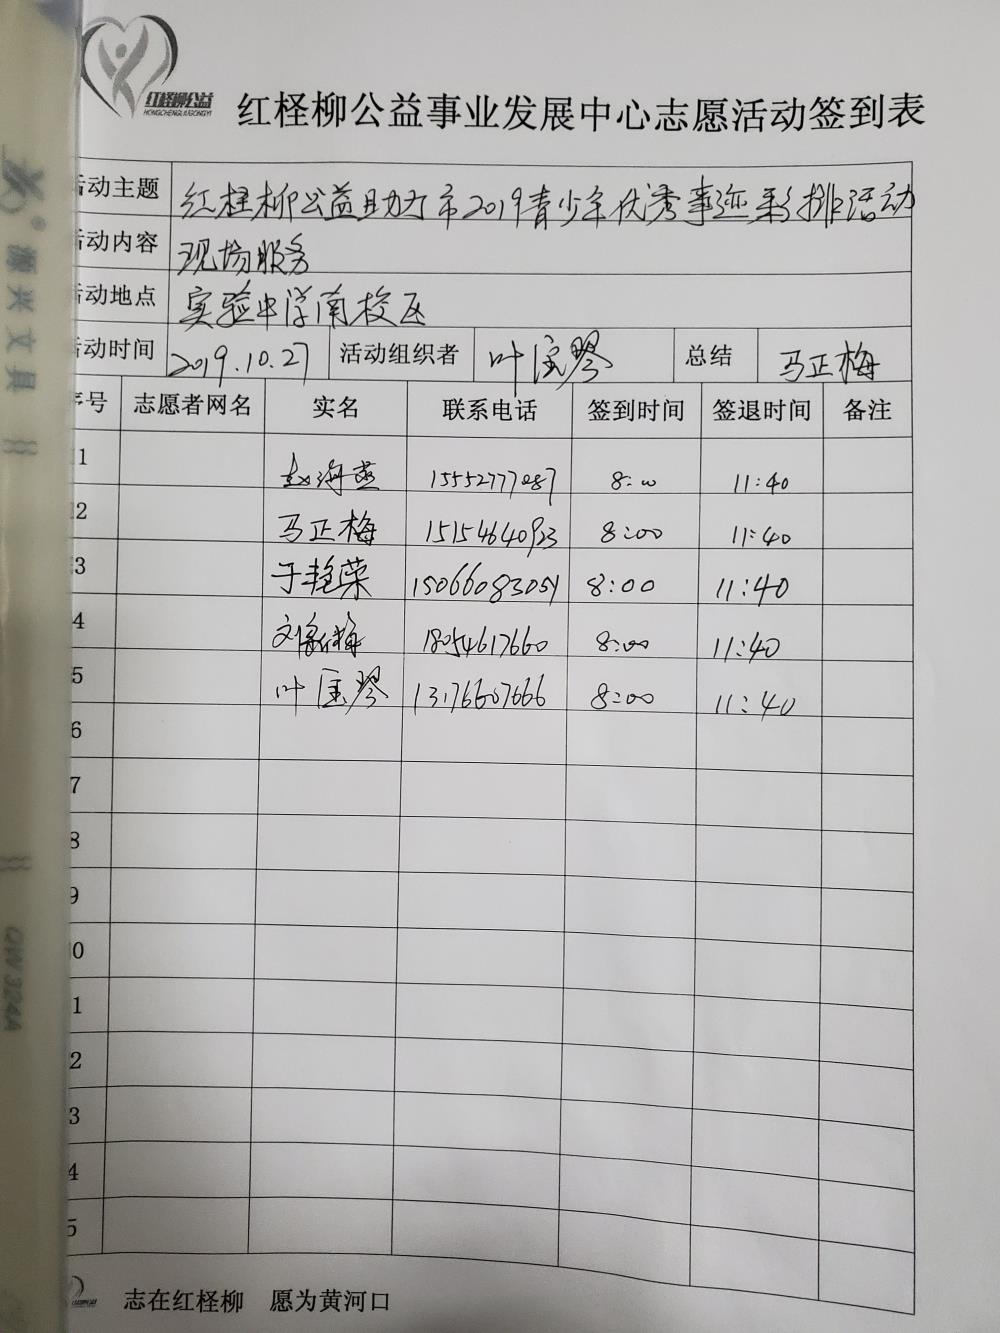 红柽柳公益
HONGCHENGLIUGONGYI
红柽柳公益事业发展中心志愿活动签到表
活动主题 红柽柳公益助力市2019青少年优秀事迹彩排活动
活动内容 现场服务
活动地点 实验中学南校区
活动时间 2019.10.27 活动组织者 叶 琴 总结 马正梅
序号 志愿者网名 实名 联系电话 签到时间 签退时间 备注
1 赵海燕 15552777087 8:00 11:40
2 马正梅 15154640923 8:00 11:40
3 于艳荣 15066083051 8:00 11:40
4 刘 梅 18054617660 8:00 11:40
5 叶 琴 13176607666 8:00 11:40
6
7
8
9
0
1
2
3
4
5
志在红柽柳 愿为黄河口
文具
QW324A